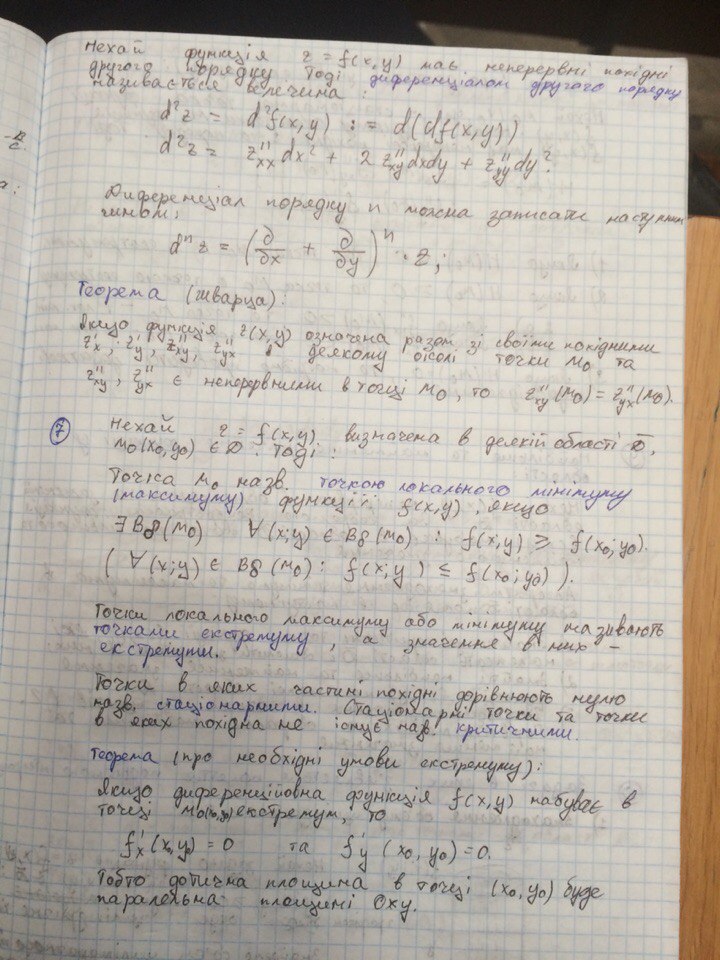 Нехай функція z = f(x,y) має неперервні похідні
другого порядку. Тоді диференціалом другого порядку
називається величина:
d²z = d²f(x,y) := d(df(x,y))
d²z = z''xx dx² + 2 z''xy dxdy + z''yy dy².
Диференціал порядку n можна записати наступним
чином:
dⁿz = (∂/∂x + ∂/∂y)ⁿ · z;
Теорема (Шварца):
Якщо функція z(x,y) означена разом зі своїми похідними
z'x; z'y; z''xy, z''yx в деякому околі точки M₀ та
z''xy, z''yx є неперервними в точці M₀, то z''xy(M₀) = z''yx(M₀).
7 Нехай z = f(x,y) визначена в деякій області D,
M₀(x₀,y₀) ∈ D. Тоді:
Точка M₀ назв. точкою локального мінімуму
(максимуму) функції f(x,y), якщо
∃ Bδ(M₀) ∀(x;y) ∈ Bδ(M₀) : f(x,y) ≥ f(x₀;y₀).
( ∀(x;y) ∈ Bδ(M₀) : f(x;y) ≤ f(x₀;y₀) ).
Точки локального максимуму або мінімуму називають
точками екстремуму, а значення в них –
екстремуми.
Точки в яких частині похідні дорівнюють нулю
назв. стаціонарними. Стаціонарні точки та точки
в яких похідна не існує назв. критичними.
Теорема (про необхідні умови екстремуму):
Якщо диференційовна функція f(x,y) набуває в
точці M₀(x₀,y₀) екстремум, то
f'x(x₀,y₀) = 0 та f'y(x₀,y₀) = 0.
Тобто дотична площина в точці (x₀,y₀) буде
паралельна площині Oxy.